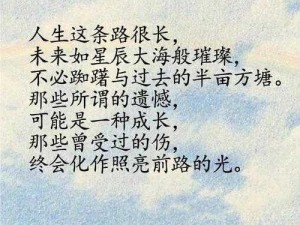 人生这条路很长，
未来如星辰大海般璀璨，
不必踟躇与过去的半亩方塘。
那些所谓的遗憾，
可能是一种成长，
那些曾受过的伤，
终会化作照亮前路的光。